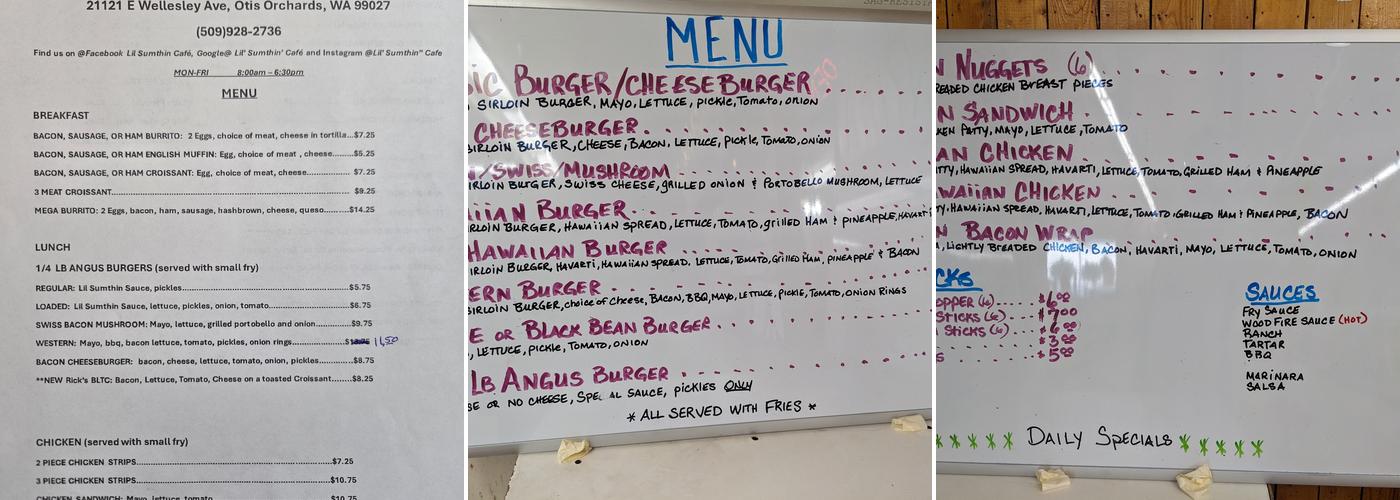 21121 E Wellesley Ave, Otis Orchards, WA 99027
(509)928-2736
Find us on @Facebook Lil Sumthin Café, Google@ Lil' Sumthin' Café and Instagram @Lil' Sumthin'' Cafe
MON-FRI 8:00am – 6:30pm
MENU
BREAKFAST
BACON, SAUSAGE, OR HAM BURRITO: 2 Eggs, choice of meat, cheese in tortilla...$7.25
BACON, SAUSAGE, OR HAM ENGLISH MUFFIN: Egg, choice of meat , cheese........$5.25
BACON, SAUSAGE, OR HAM CROISSANT: Egg, choice of meat, cheese.............. $7.25
3 MEAT CROISSANT.......................................................................... $9.25
MEGA BURRITO: 2 Eggs, bacon, ham, sausage, hashbrown, cheese, queso.....$14.25
LUNCH
1/4 LB ANGUS BURGERS (served with small fry)
REGULAR: Lil Sumthin Sauce, pickles...................................................$5.75
LOADED: Lil Sumthin Sauce, lettuce, pickles, onion, tomato.........................$6.75
SWISS BACON MUSHROOM: Mayo, lettuce, grilled portobello and onion..........$9.75
WESTERN: Mayo, bbq, bacon lettuce, tomato, pickles, onion rings.................$ 11.50
BACON CHEESEBURGER: bacon, cheese, lettuce, tomato, onion, pickles.........$8.75
**NEW Rick's BLTC: Bacon, Lettuce, Tomato, Cheese on a toasted Croissant.......$8.25
CHICKEN (served with small fry)
2 PIECE CHICKEN STRIPS...............................................$7.25
3 PIECE CHICKEN STRIPS...............................................$10.75
CHICKEN SANDWICH: Mayo, lettuce, tomato $10.75
MENU
IC BURGER/CHEESEBURGER . . . . . .
SIRLOIN BURGER, MAYO, LETTUCE, PICKLE, TOMATO, ONION
CHEESEBURGER . . . . . . . . . .
SIRLOIN BURGER, CHEESE, BACON, LETTUCE, PICKLE, TOMATO, ONION
/SWISS/MUSHROOM . . . . . . . . .
SIRLOIN BURGER, SWISS CHEESE, GRILLED ONION & PORTOBELLO MUSHROOM, LETTUCE
AIIAN BURGER . . . . . . . . . .
SIRLOIN BURGER, HAWAIIAN SPREAD, LETTUCE, TOMATO, GRILLED HAM & PINEAPPLE, HAVARTI
HAWAIIAN BURGER . . . . . . . . .
SIRLOIN BURGER, HAVARTI, HAWAIIAN SPREAD, LETTUCE, TOMATO, GRILLED HAM, PINEAPPLE & BACON
ERN BURGER . . . . . . . . . .
SIRLOIN BURGER, CHOICE OF CHEESE, BACON, BBQ, MAYO, LETTUCE, PICKLE, TOMATO, ONION RINGS
E OR BLACK BEAN BURGER . . . . . .
, LETTUCE, PICKLE, TOMATO, ONION
LB ANGUS BURGER . . . . . . . .
SE OR NO CHEESE, SPECIAL SAUCE, PICKLES ONLY
* ALL SERVED WITH FRIES *
N NUGGETS (6) . . . . . . . .
READED CHICKEN BREAST PIECES
N SANDWICH . . . . . . . . .
KEN PATTY, MAYO, LETTUCE, TOMATO
AN CHICKEN . . . . . . . . .
TTY, HAWAIIAN SPREAD, HAVARTI, LETTUCE, TOMATO, GRILLED HAM & PINEAPPLE
WAIIAN CHICKEN . . . . . . . .
TY, HAWAIIAN SPREAD, HAVARTI, LETTUCE, TOMATO, GRILLED HAM & PINEAPPLE, BACON
N BACON WRAP . . . . . . . .
, LIGHTLY BREADED CHICKEN, BACON, HAVARTI, MAYO, LETTUCE, TOMATO, ONION
CKS
OPPER (6) . . . . $6.00
STICKS (6) . . . . $7.00
STICKS (6) . . . $6.00
. . . . . . . $3.00
S . . . . . . $5.00
SAUCES
FRY SAUCE
WOODFIRE SAUCE (HOT)
RANCH
TARTAR
BBQ
MARINARA
SALSA
* * * * * DAILY SPECIALS * * * * *